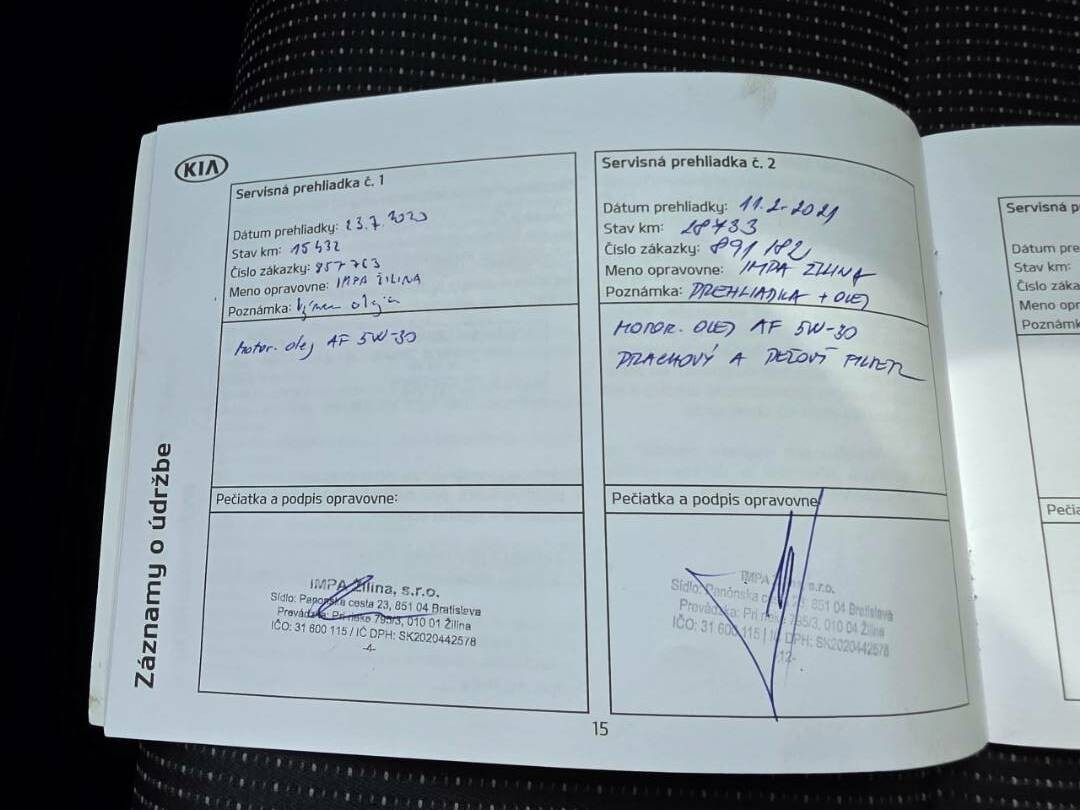 KIA
Záznamy o údržbe
Servisná prehliadka č. 1
Dátum prehliadky: 23.7.2020
Stav km: 15432
Číslo zákazky: 857763
Meno opravovne: IMPA ŽILINA
Poznámka:
Motor. olej AF 5W-30
Pečiatka a podpis opravovne:
IMPA Žilina, s.r.o.
Sídlo: Panónska cesta 23, 851 04 Bratislava
Prevádzka: Pri 795/3, 010 01 Žilina
IČO: 31 600 115 / IČ DPH: SK2020442578
-4-
Servisná prehliadka č. 2
Dátum prehliadky: 11.2.2021
Stav km: 28733
Číslo zákazky: 891182
Meno opravovne: IMPA ZILINA
Poznámka: PREHLIADKA + OLEJ
MOTOR. OLEJ AF 5W-30
PRACHOVÝ A PEĽOVÍ FILTER
Pečiatka a podpis opravovne
IMPA s.r.o.
Sídlo: Panónska cesta 23, 851 04 Bratislava
Prevádzka: Pri 795/3, 010 04 Žilina
IČO: 31 600 115 | IČ DPH: SK2020442578
-12-
15
Servisná p
Dátum pre
Stav km:
Číslo záka
Meno opr
Poznámk
Pečia